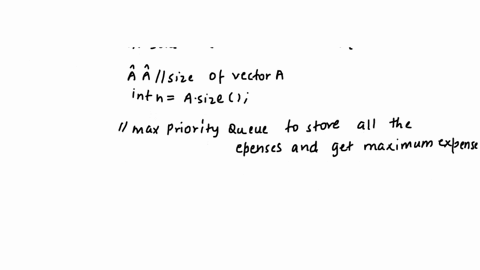 Â Â //size of vector A
int n= A.size();
//max Priority Queue to store all the
epenses and get maximum expense